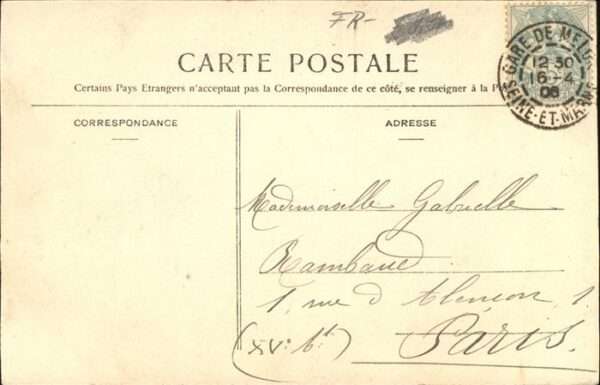 FR-
CARTE POSTALE
Certains Pays Etrangers n'acceptant pas la Correspondance de ce côté, se renseigner à la
CORRESPONDANCE
ADRESSE
GARE DE MELUN
12 30
16-4
06
SEINE-ET-MARNE
Mademoiselle Gabrielle
Rambaud
1, rue d'Alençon, 1.
(XVe Ar.t) Paris.